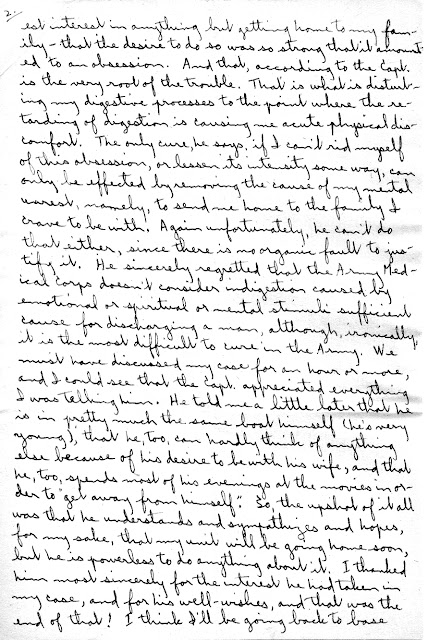 2.
est interest in anything but getting home to my fam-
ily - that the desire to do so was so strong that it amount-
ed to an obsession. And that, according to the Capt.
is the very root of the trouble. That is what is disturb-
ing my digestive processes to the point where the re-
tarding of digestion is causing me acute physical dis-
comfort. The only cure, he says, if I can't rid myself
of this obsession, or lessen its intensity some way, can
only be effected by removing the cause of my mental
unrest, namely, to send me home to the family I
crave to be with. Again unfortunately, he can't do
that either, since there is no organic fault to jus-
tify it. He sincerely regretted that the Army Med-
ical Corps doesn't consider indigestion caused by
emotional or spiritual or mental stimuli sufficient
cause for discharging a man, although, ironically,
it is the most difficult to cure in the Army. We
must have discussed my case for an hour or more,
and I could see that the Capt. appreciated everything
I was telling him. He told me a little later that he
is in pretty much the same boat himself (he's very
young), that he, too, can hardly think of anything
else because of his desire to be with his wife, and that
he, too, spends most of his evenings at the movies in or-
der to "get away from himself". So, the upshot of it all
was that he understands and sympathizes and hopes,
for my sake, that my unit will be going home soon,
but he is powerless to do anything about it. I thanked
him most sincerely for the interest he had taken in
my case, and for his well-wishes, and that was the
end of that! I think I'll be going back to base